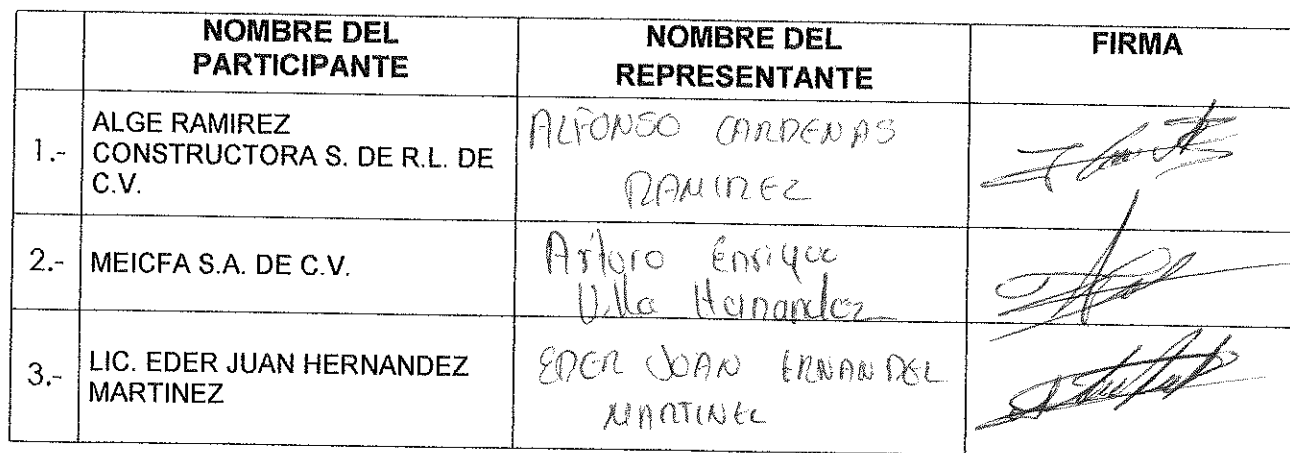 NOMBRE DEL PARTICIPANTE
NOMBRE DEL REPRESENTANTE
FIRMA
1.-
ALGE RAMIREZ
CONSTRUCTORA S. DE R.L. DE
C.V.
ALFONSO CARDENAS
RAMIREZ
2.-
MEICFA S.A. DE C.V.
Arturo Enrique
Villa Hernandez
3.-
LIC. EDER JUAN HERNANDEZ
MARTINEZ
EDER JUAN ERNANDEZ
MARTINEZ